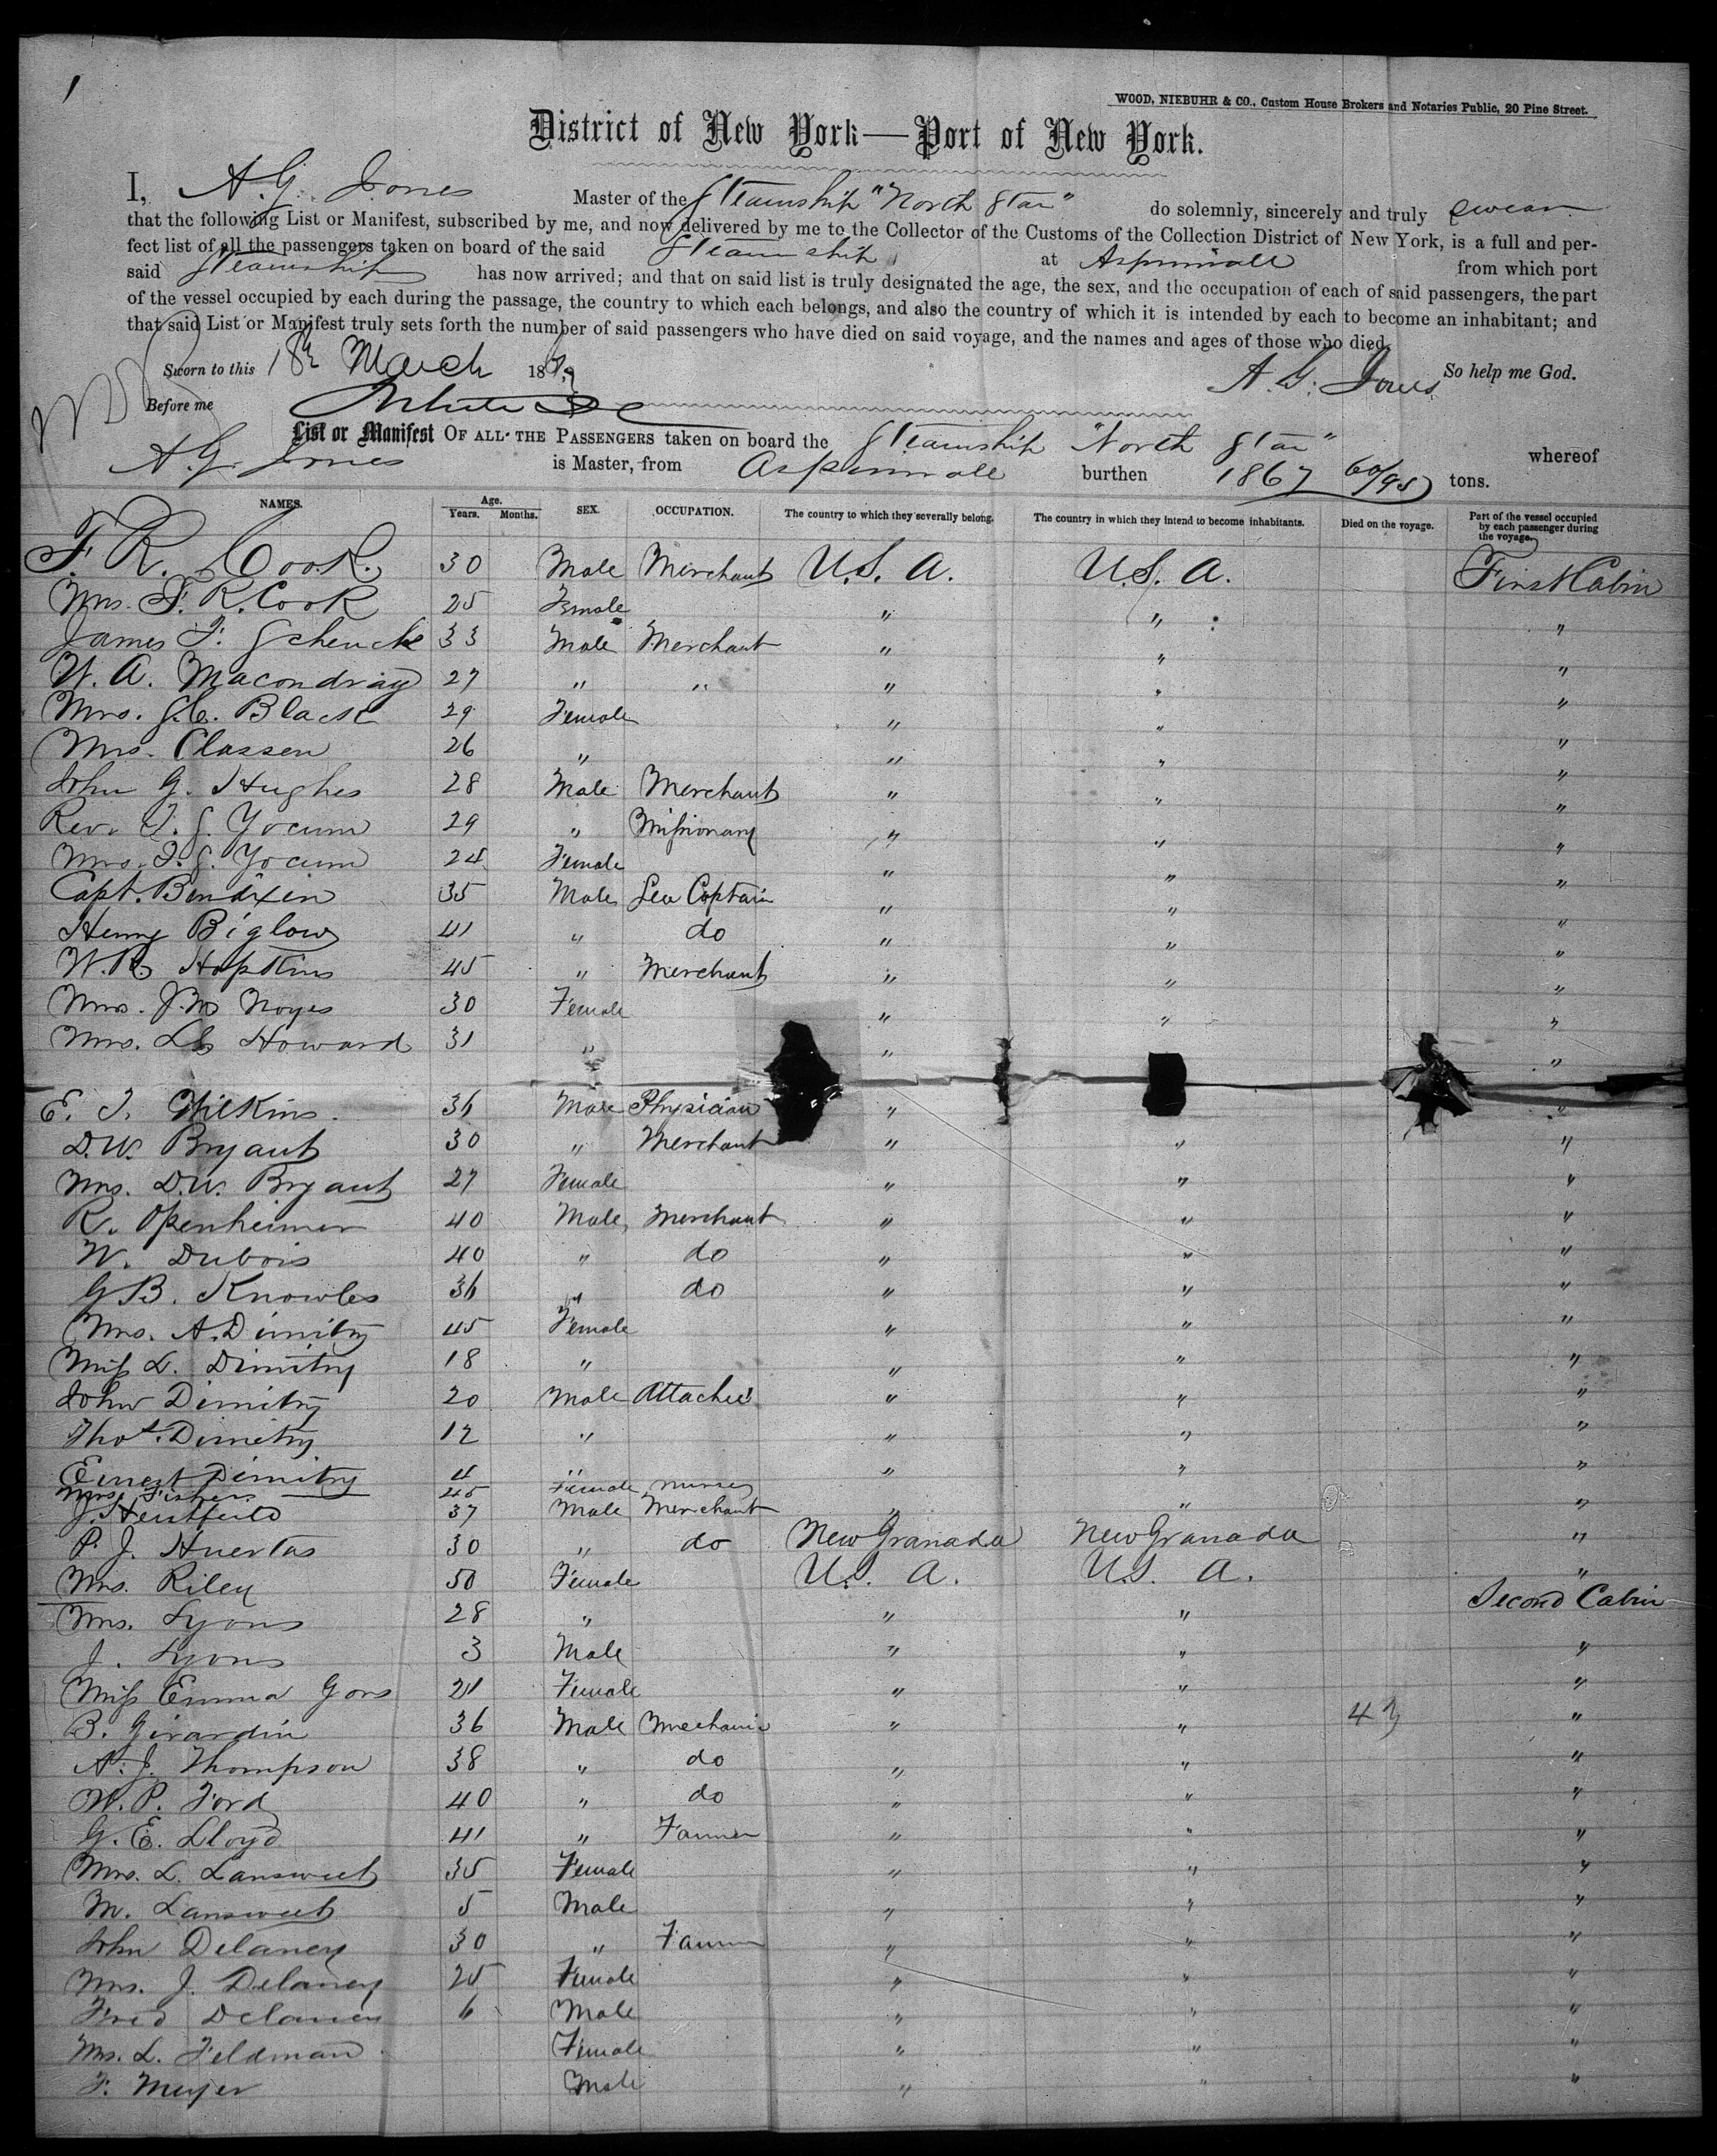 1
WOOD, NIEBUHR & CO., Custom House Brokers and Notaries Public, 20 Pine Street.
District of New York—Port of New York.
I, A. G. Jones Master of the Steamship "North Star" do solemnly, sincerely and truly swear
that the following List or Manifest, subscribed by me, and now delivered by me to the Collector of the Customs of the Collection District of New York, is a full and per-
fect list of all the passengers taken on board of the said Steamship at Aspinwall from which port
said Steamship has now arrived; and that on said list is truly designated the age, the sex, and the occupation of each of said passengers, the part
of the vessel occupied by each during the passage, the country to which each belongs, and also the country of which it is intended by each to become an inhabitant; and
that said List or Manifest truly sets forth the number of said passengers who have died on said voyage, and the names and ages of those who died.
Sworn to this 18th March 18 A. G. Jones So help me God.
Before me
List or Manifest OF ALL THE PASSENGERS taken on board the Steamship "North Star" whereof
A. G. Jones is Master, from Aspinwall burthen 1867 60/95 tons.
NAMES. Age. Years. Months. SEX. OCCUPATION. The country to which they severally belong. The country in which they intend to become inhabitants. Died on the voyage. Part of the vessel occupied by each passenger during the voyage.
F. R. Cook. 30 Male Merchant U.S. A. U.S. A. First Cabin
Mrs. F. R. Cook 25 Female " " "
James F. Schenck 33 Male Merchant " " "
W. A. Macondray 27 " " " " "
Mrs. S. C. Black 29 Female " " "
Mrs. Classen 26 " " " "
John G. Hughes 28 Male Merchant " " "
Rev. T. S. Yocum 29 " Missionary " " "
Mrs. T. S. Yocum 24 Female " " "
Capt. Bendixen 35 Male Sea Captain " " "
Henry Biglow 41 " do " " "
W. R. Hopkins 45 " Merchant " " "
Mrs. J. M. Noyes 30 Female " " "
Mrs. Howard 31 " " "
E. J. Wilkins. 36 Male Physician " "
D. W. Bryant 30 " Merchant " " "
Mrs. D. W. Bryant 27 Female " " "
R. Openheimer 40 Male Merchant " " "
W. Dubois 40 " do " " "
G. B. Knowles 36 " do " " "
Mrs. A. Dimitry 45 Female " " "
Miss L. Dimitry 18 " " " "
John Dimitry 20 Male Attacheé " " "
Thos. Dimitry 12 " " " "
Ernest Dimitry 4 " " " "
Mrs. Fisher 45 Female Nurse
J. 37 Male Merchant " " "
P. J. Huertas 30 " do New Granada New Granada "
Mrs. Riley 50 Female U.S. A. U.S. A. "
Mrs. Lyons 28 " " " Second Cabin
J. Lyons 3 Male " " "
Miss Emma Gors 21 Female " " "
B. Girardin 36 Male Mechanic " " 43 "
A. J. Thompson 38 " do " " "
W. P. Ford 40 " do " " "
G. E. Lloyd 41 " Farmer " " "
Mrs. L. Lansweet 35 Female " " "
M. Lansweet 5 Male " " "
John Delaney 30 " Farmer " " "
Mrs. J. Delaney 25 Female " " "
Fred Delaney 6 Male " " "
Mrs. L. Feldman Female " " "
F. Meyer Male " " "